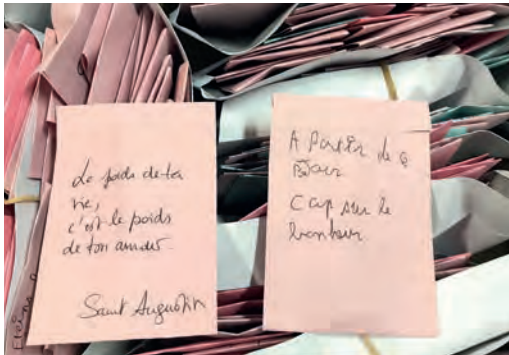 Le poids de ta
vie,
c'est le poids
de ton amour.
Saint Augustin
A Partir de ce
Jour
Cap sur le
bonheur